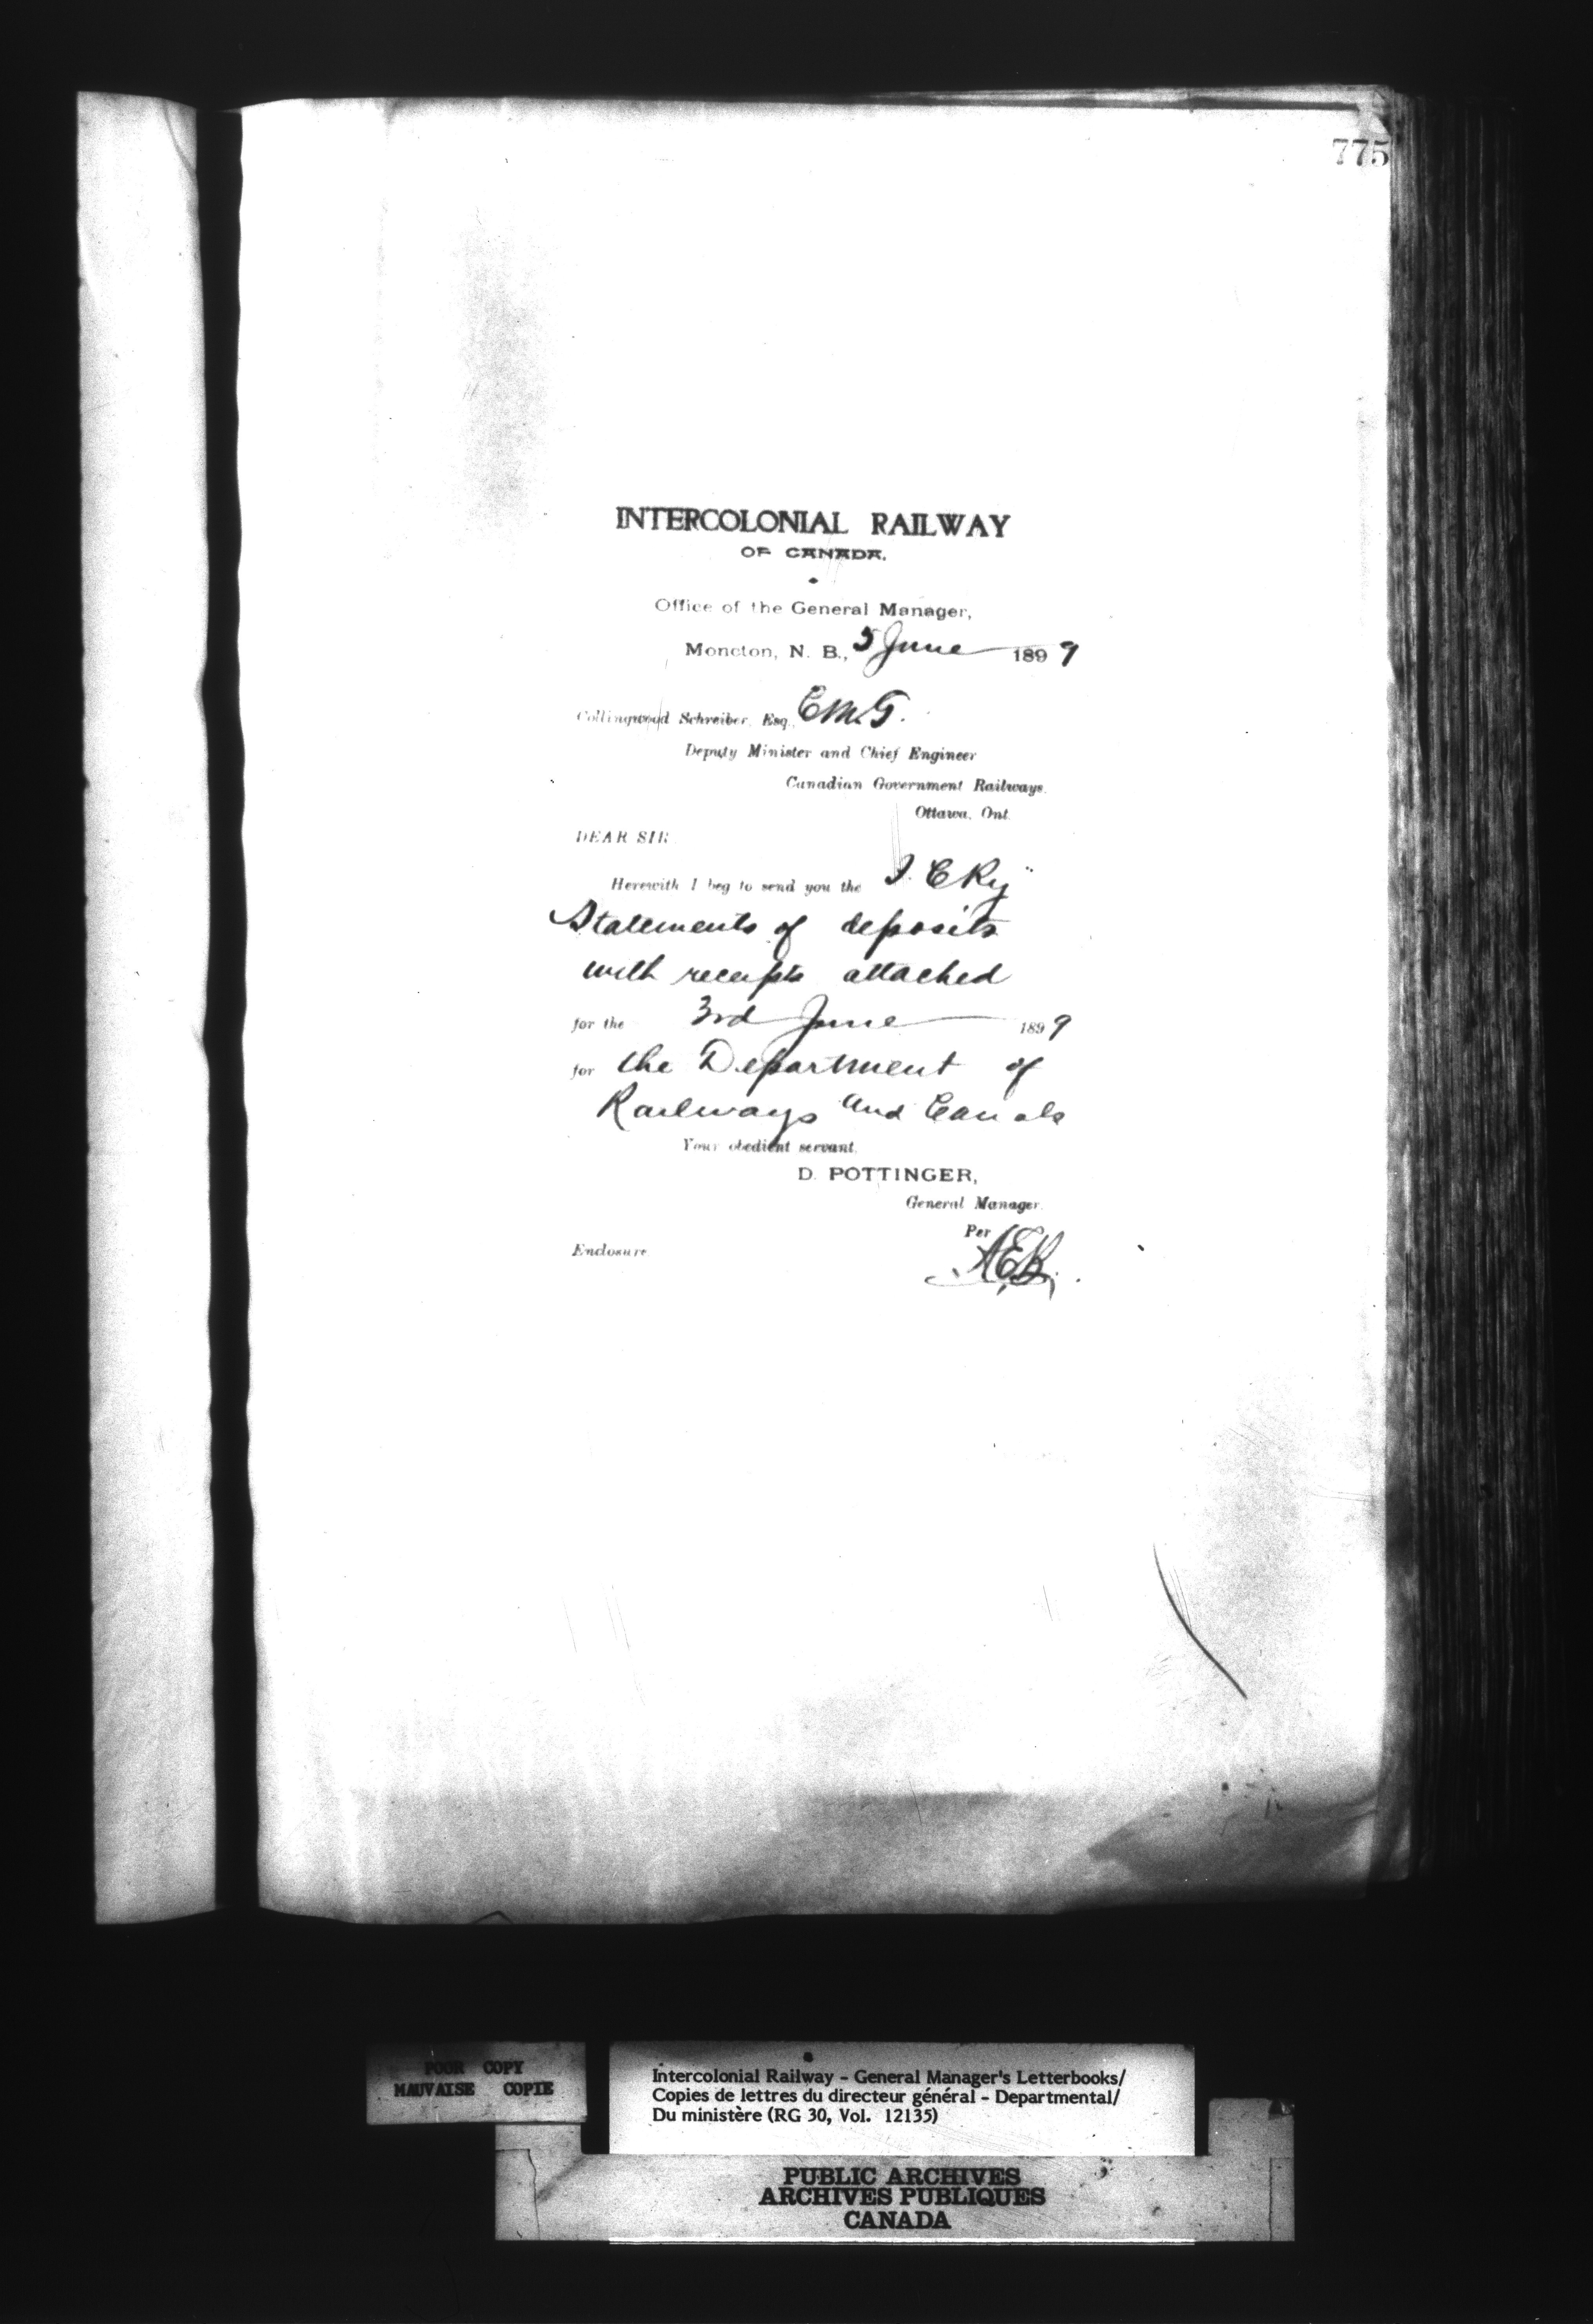 775
INTERCOLONIAL RAILWAY
OF CANADA.
Office of the General Manager,
Moncton, N. B., 5 June 1899
Collingwood Schreiber, Esq., C.M.G.
Deputy Minister and Chief Engineer
Canadian Government Railways.
Ottawa, Ont.
DEAR SIR
Herewith I beg to send you the I. C Ry
Statements of deposits
with receipts attached
for the 3rd June 1899
for the Department of
Railways and Canals
Your obedient servant,
D. POTTINGER,
General Manager.
Per
Enclosure
POOR COPY
MAUVAISE COPIE
Intercolonial Railway - General Manager's Letterbooks/
Copies de lettres du directeur général - Departmental/
Du ministère (RG 30, Vol. 12135)
PUBLIC ARCHIVES
ARCHIVES PUBLIQUES
CANADA